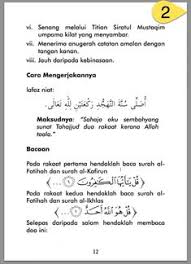 2
vi. Senang melalui Titian Siratul Mustaqim
umpama kilat yang menyambar.
vii. Menerima anugerah catatan amalan dengan
tangan kanan.
viii. Jauh daripada kebinasaan.
Cara Mengerjakannya
lafaz niat:
أُصَلِّي سُنَّةَ التَّهَجُّدِ رَكْعَتَيْنِ لِلَّهِ تَعَالَى.
Maksudnya: "Sahaja aku sembahyang
sunat Tahajjud dua rakaat kerana Allah
taala."
Bacaan
Pada rakaat pertama hendaklah baca surah al-
Fatihah dan surah al-Kafirun
﴿ قُلْ يَا أَيُّهَا الْكَافِرُونَ ۝١ ... ﴾
Pada rakaat kedua hendaklah baca surah al-
Fatihah dan surah al-Ikhlas
﴿ قُلْ هُوَ اللَّهُ أَحَدٌ ۝١ ... ﴾
Selepas daripada salam hendaklah membaca
doa ini:
12